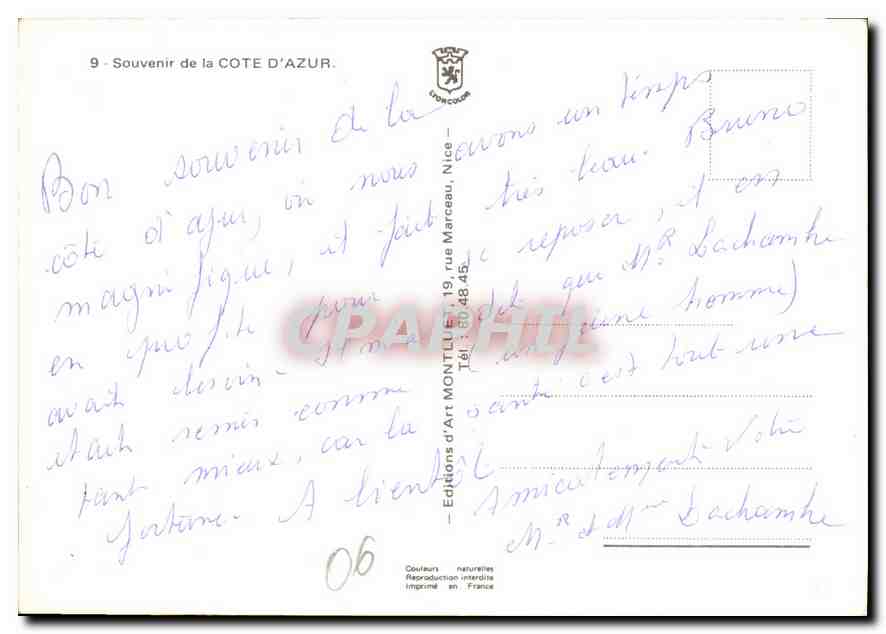 9 - Souvenir de la COTE D'AZUR.
LYONCOLOR
Bon souvenir de la
côte d'azur, où nous avons un temps
magnifique, il fait très beau. Bruno
en profite pour se reposer, il en
avait besoin. Il m'a dit que Mr
était remis comme (un jeune homme)
tant mieux, car la santé c'est tout une
fortune. A bientôt
Amicalement Votre
Mr et Mme
— Editions d'Art MONTLUET, 19, rue Marceau, Nice —
Tél : 80.48.45
CPAPHIL
06
Couleurs naturelles
Reproduction interdite
Imprimé en France